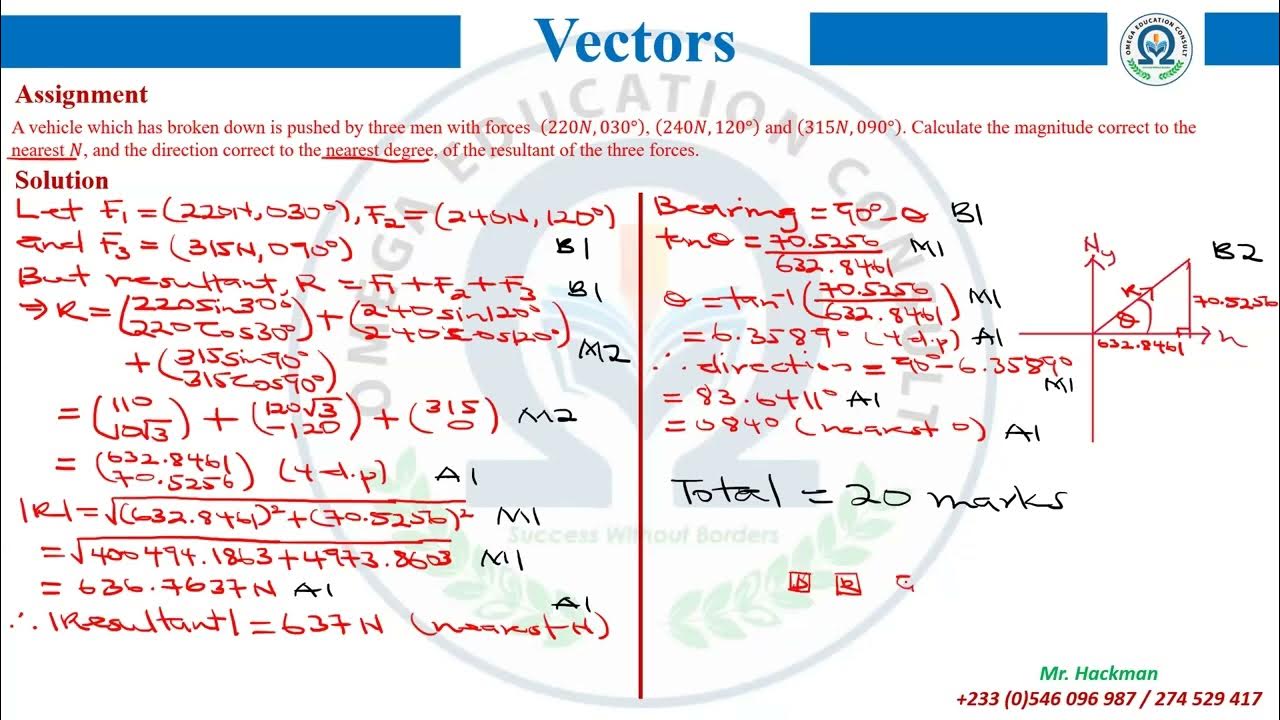 Vectors
OMEGA EDUCATION CONSULT
Assignment
A vehicle which has broken down is pushed by three men with forces (220N, 030°), (240N, 120°) and (315N, 090°). Calculate the magnitude correct to the
nearest N, and the direction correct to the nearest degree, of the resultant of the three forces.
Solution
Let F₁ = (220N, 030°), F₂ = (240N, 120°)
and F₃ = (315N, 090°) B1
But resultant, R = F₁ + F₂ + F₃ B1
⇒ R = (220sin30° / 220cos30°) + (240sin120° / 240cos120°)
+ (315sin90° / 315cos90°) M2
= (110 / 110√3) + (120√3 / -120) + (315 / 0) M2
= (632.8461 / 70.5256) (4 d.p) A1
|R| = √(632.8461)² + (70.5256)² M1
= √400494.1863 + 4973.8603 M1
= 636.7637N A1
∴ |Resultant| = 637N (nearest N) A1
Bearing = 90° - θ B1
tanθ = 70.5256 / 632.8461 M1
θ = tan⁻¹(70.5256 / 632.8461) M1
= 6.3589° (4 d.p) A1
∴ direction = 90° - 6.3589° M1
= 83.6411° A1
= 084° (nearest °) A1
N
y
B2
R
θ
70.5256
632.8461
x
Total = 20 marks
OMEGA EDUCATION CONSULT
Success Without Borders
Mr. Hackman
+233 (0)546 096 987 / 274 529 417